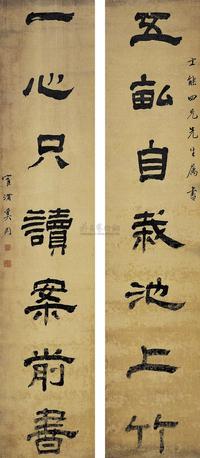 士能四兄先生属書
五畝自栽池上竹
一心只讀案前書